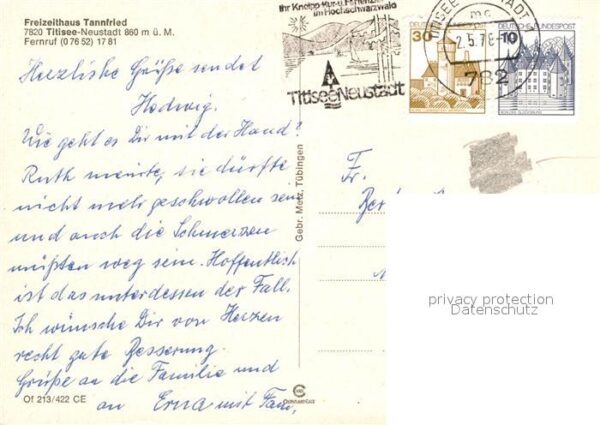 Freizeithaus Tannfried
7820 Titisee-Neustadt 860 m ü. M.
Fernruf (0 76 52) 17 81
Herzliche Grüße sendet
Hedwig.
Wie geht es Dir mit der Hand?
Ruth meinte, sie dürfte
nicht mehr geschwollen sein
und auch die Schmerzen
müßten weg sein. Hoffentlich
ist das unterdessen der Fall.
Ich wünsche Dir von Herzen
recht gute Besserung.
Grüße an die Familie und
an Erna mit Fam.
Of 213/422 CE
Gebr. Metz, Tübingen
Ihr Kneipp-Kur-u. Ferienziel
im Hochschwarzwald
Titisee Neustadt
30
TITISEE-NEUSTADT
mc
2.5.78
782
10
DEUTSCHE BUNDESPOST
SCHLOSS GLÜCKSBURG
Fr.
privacy protection
Datenschutz